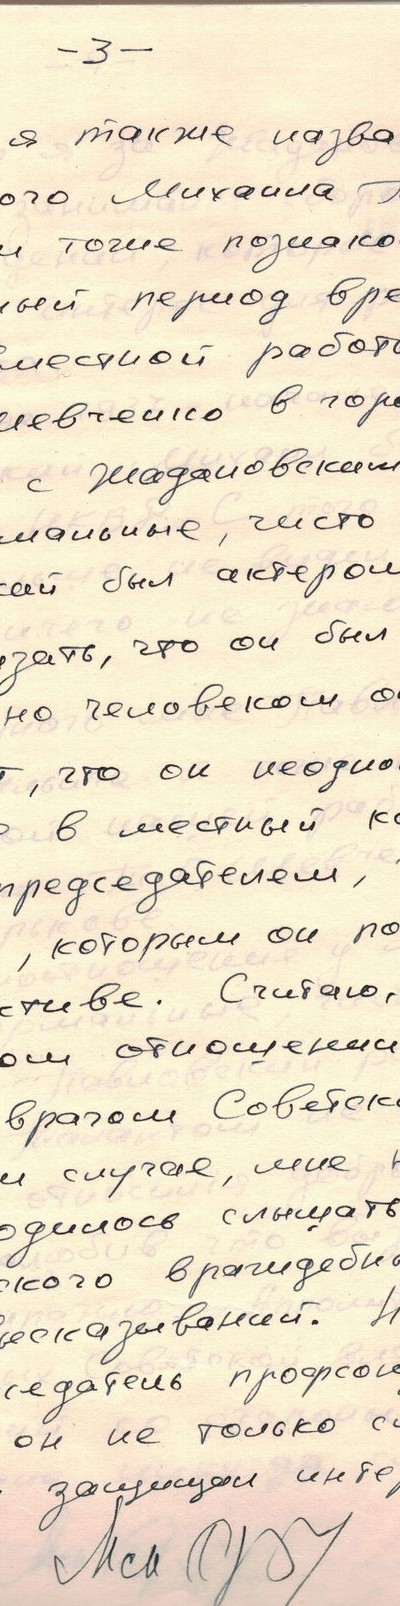 -3-
я также назва
ого Михаила
и тоже познако
ный период вре
вместной работы
шевченко в горо
с Жадановским
мальные, чисто
кий был актером
зать, что он был
но человеком о
т, что он неодно
в местный ко
председателем,
, которым он по
ктиве. Считаю,
ом отношении
врагом Советск
м случае, мне н
одилось слышать
ского враждебны
высказываний. Н
седатель профсою
он не только с
защищал инте